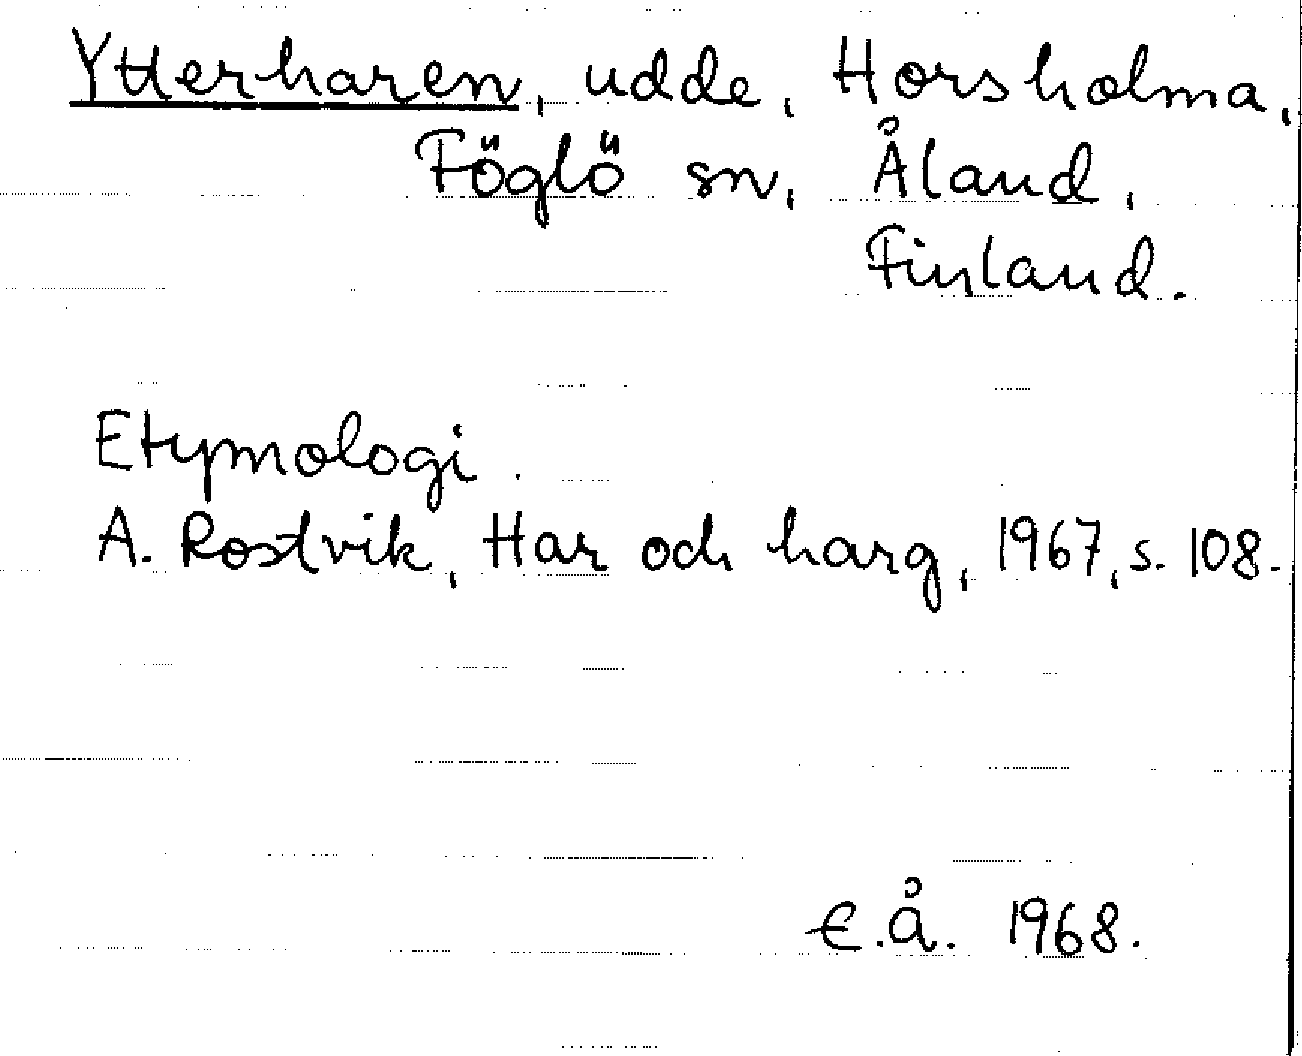 Ytterharen, udde, Horsholma,
Föglö sn, Åland,
Finland.
Etymologi.
A. Rostvik, Har och harg, 1967, s. 108.
E.Å. 1968.